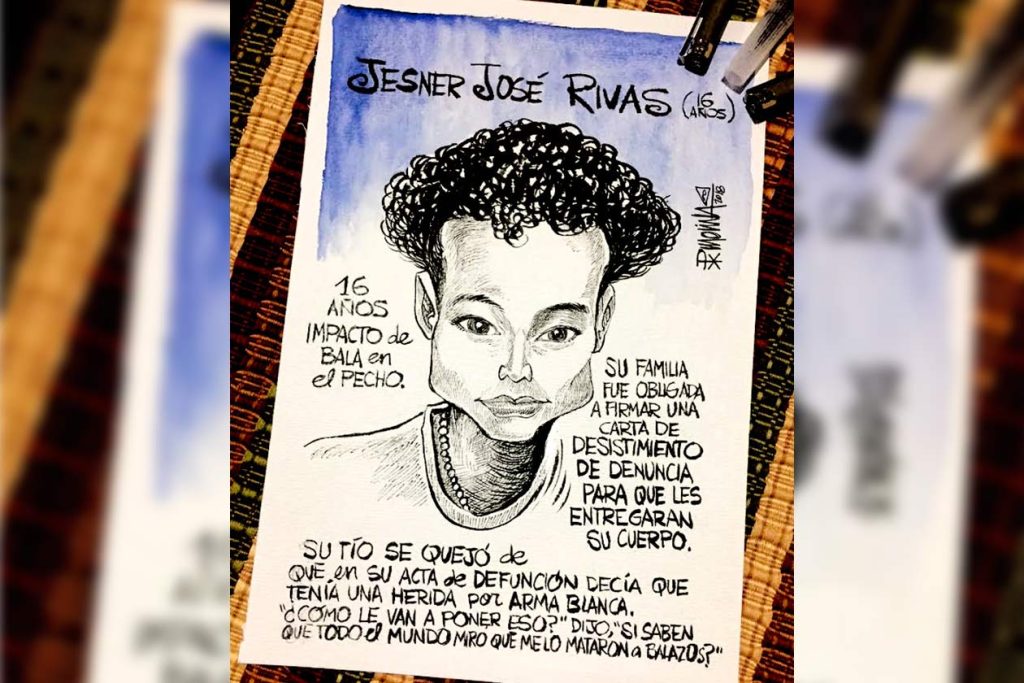 JESNER JOSÉ RIVAS (16 AÑOS)
PXMOLINA 2018
16
AÑOS
IMPACTO de
BALA en
el PECHO.
SU FAMILIA
FUE OBLIGADA
A FIRMAR UNA
CARTA DE
DESISTIMIENTO
DE DENUNCIA
PARA QUE LES
ENTREGARAN
SU CUERPO.
SU TÍO SE QUEJÓ de
QUE en SU ACTA de DEFUNCIÓN DECÍA QUE
TENÍA UNA HERIDA POR ARMA BLANCA.
"¿COMO LE VAN A PONER ESO?" DIJO, "SI SABEN
QUE TODO el MUNDO MIRO QUE ME LO MATARON a BALAZOS?"